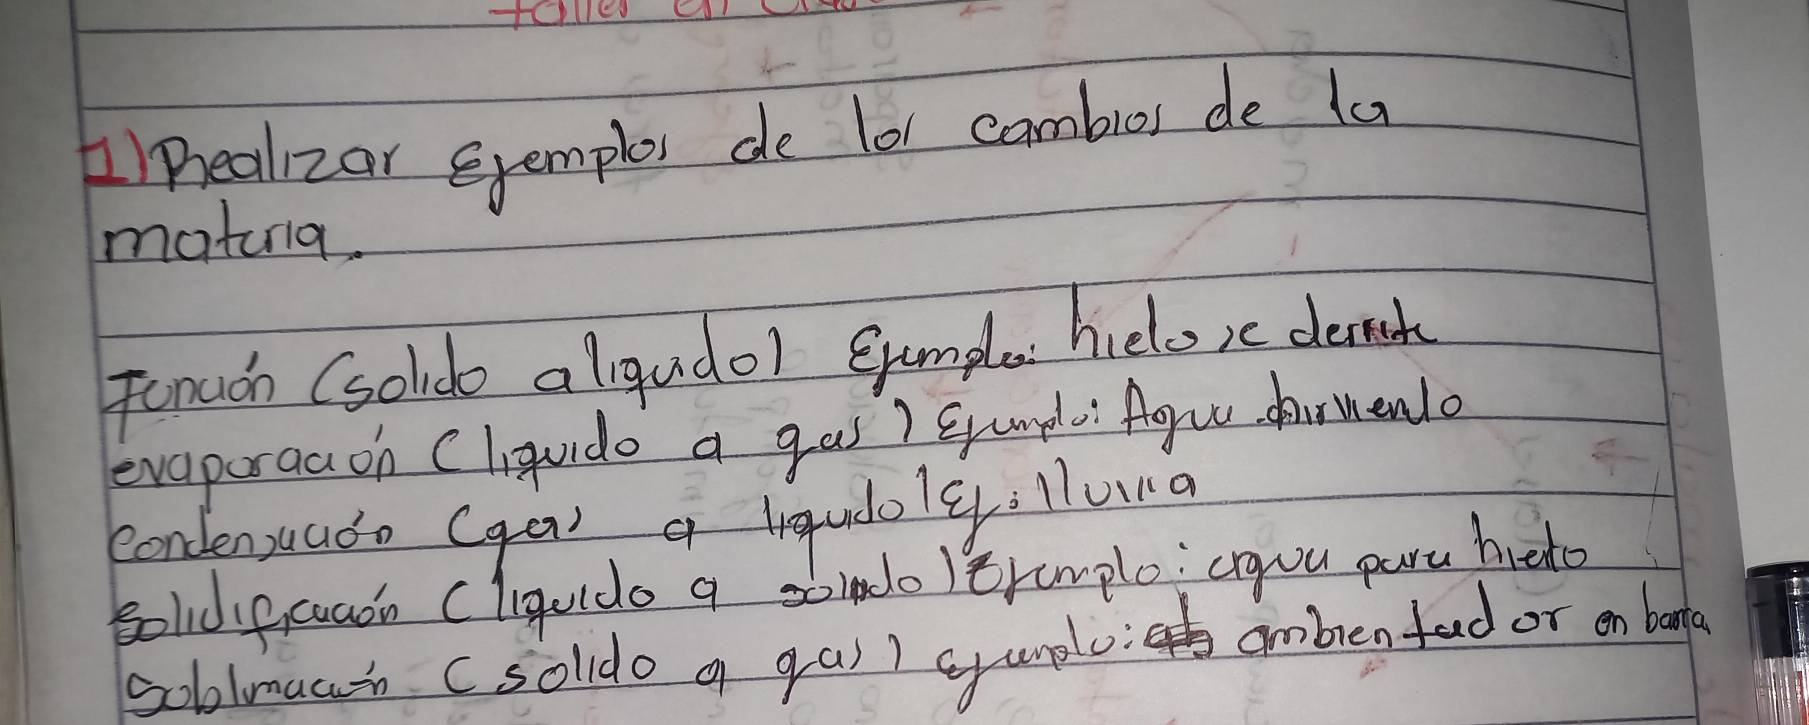 taller en
1) Realizar Ejemplos de los cambios de la
materia.
Fonción (solido a liquido) Ejemplo: hielo se derrite
evaporación (liquido a gas) Ejemplo: Agua hirviendo
condensación (gas a liquido) Ej: lluvia
solidificación (liquido a solido) Ejemplo: agua para hielo
Soblimación (solido a gas) ejemplo: ambientador en barra